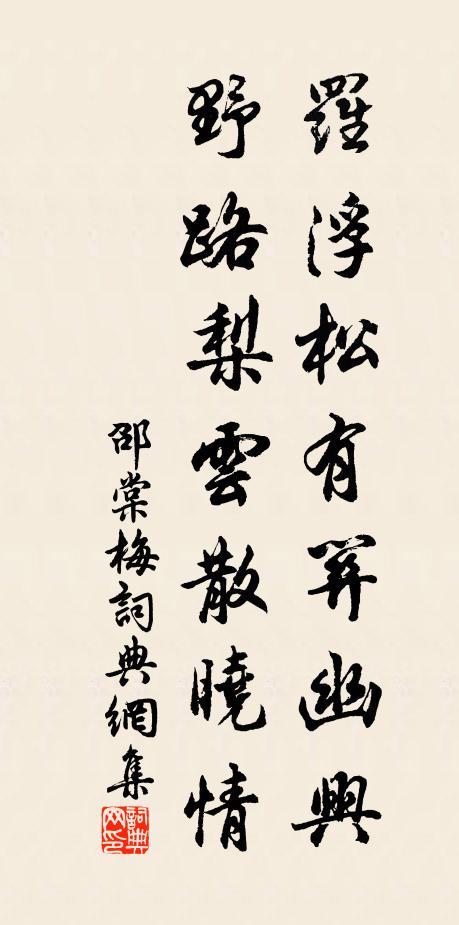 羅浮松有開幽興
野路梨雲散曉情
邵棠梅詞典網集
詞典
网印